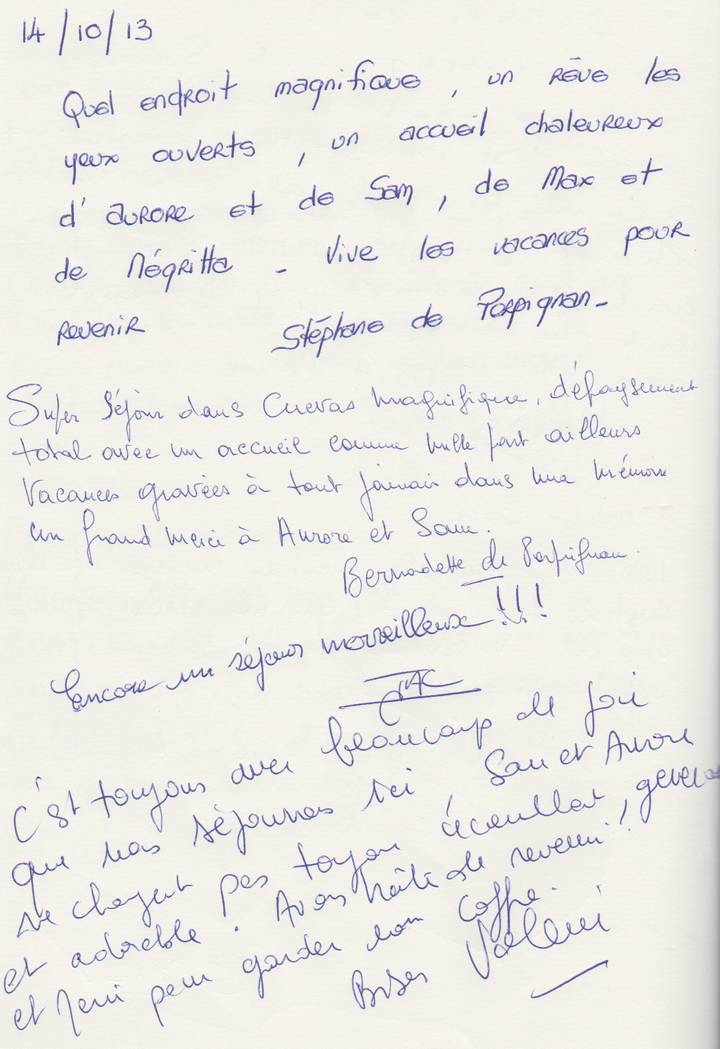 14/10/13
Quel endroit magnifique, un rêve les
yeux ouverts, un accueil chaleureux
d'aurore et de Sam, de Max et
de Négritta - Vive les vacances pour
revenir Stéphane de Perpignan-
Super Séjour dans Cuevas magnifique, dépaysement
total avec un accueil comme nulle part ailleurs
Vacances gravées à tout jamais dans ma mémoire
un grand merci à Aurore et Sam.
Bernadette de Perpignan.
Encore un séjour merveilleux!!!
C'est toujours avec beaucoup de joie
que nous séjournos ici, Sam et Aurore
ne changent pas toujour
et adorable. Avons hâte de revenir!
et merci pour garder mon coffre.
Bises Valérie